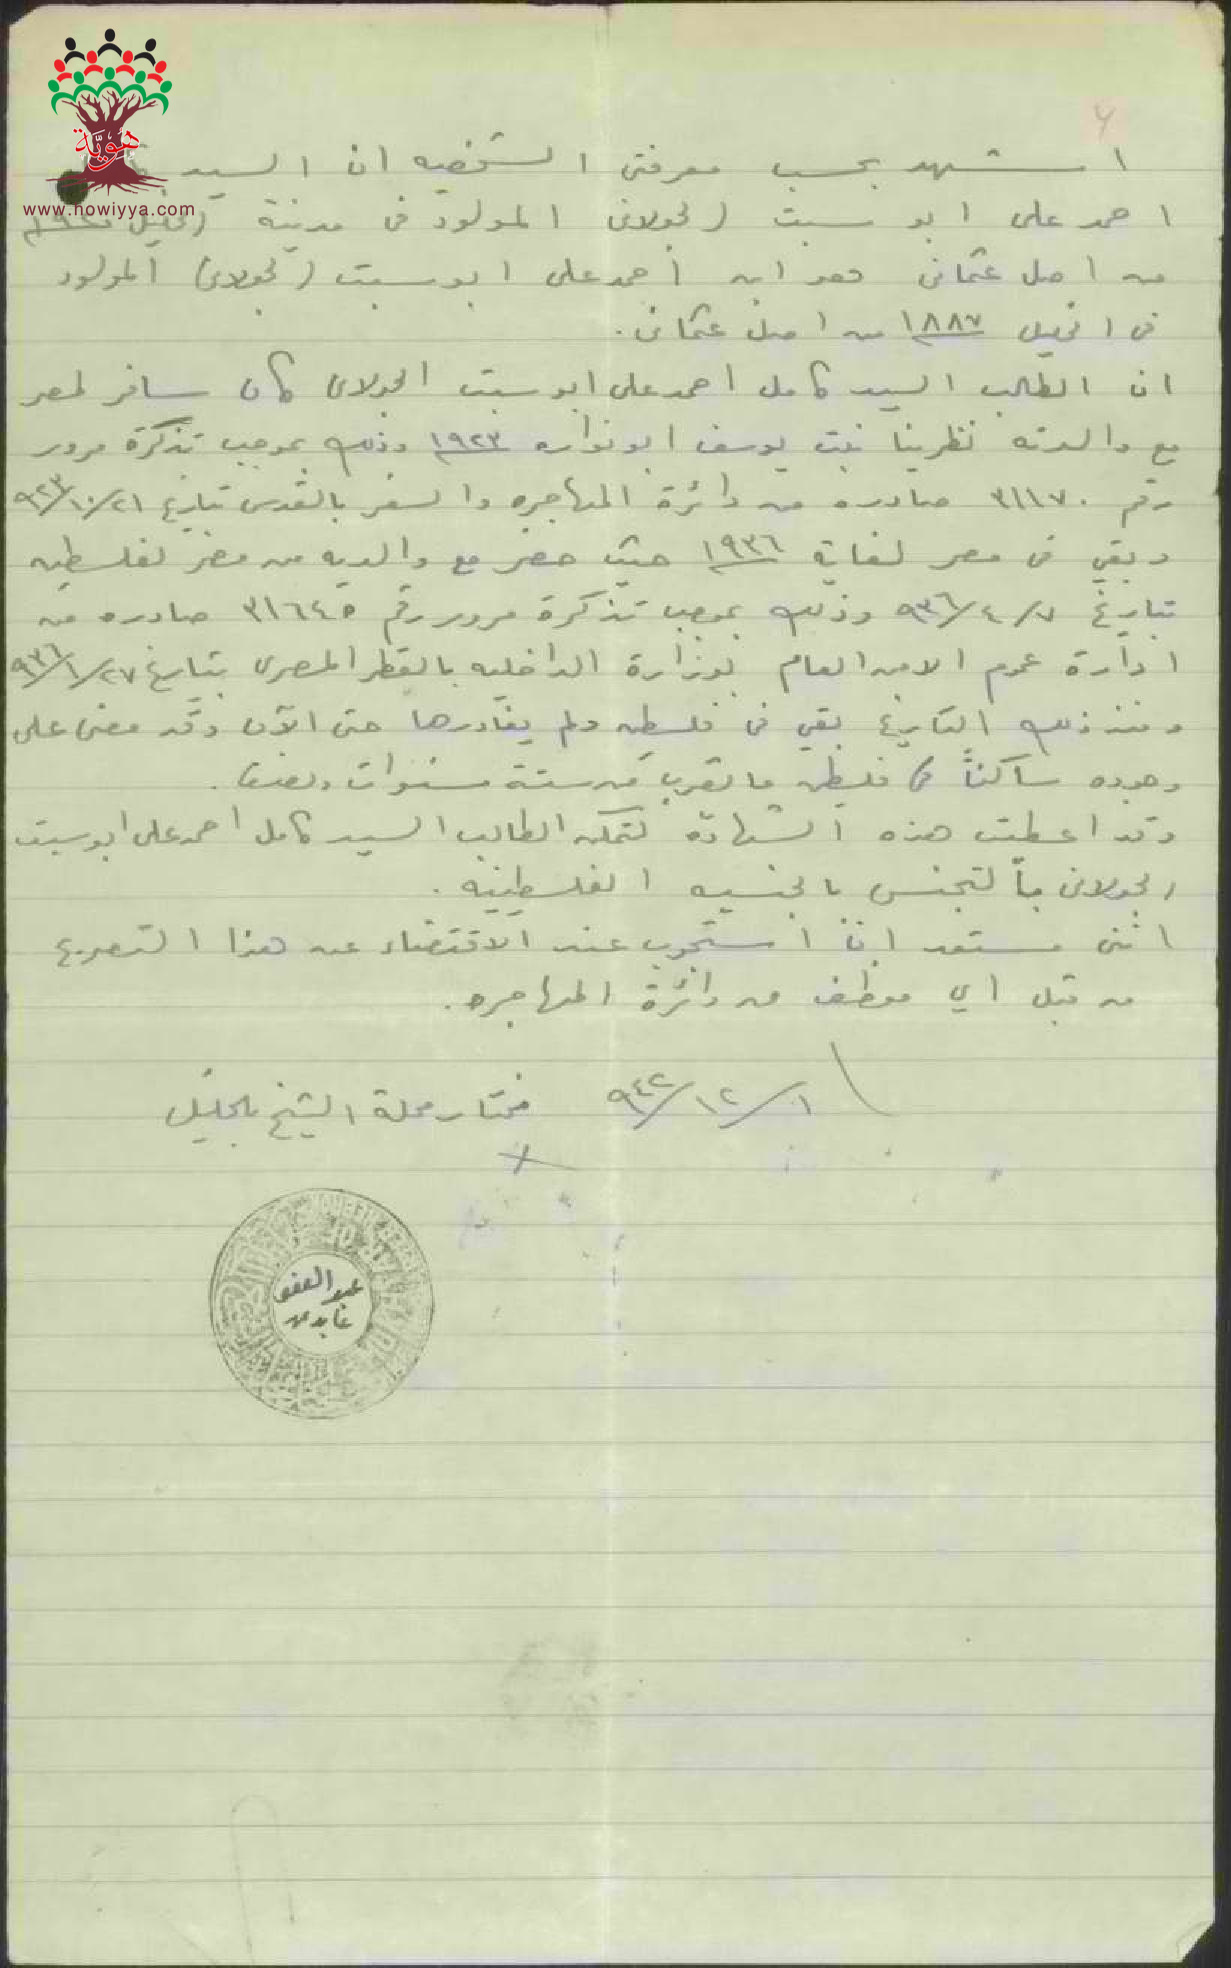 هُوِيَّة
www.howiyya.com
اشهد بحسب معرفتي الشخصيه ان السيد
احمد علي ابو سبت الجولاني المولود في مدينة الخليل
من اصل عثماني هو ابن احمد علي ابو سبت (الجولاني) المولود
في الخليل ١٨٨٧ من اصل عثماني.
ان الطالب السيد كامل احمد علي ابو سبت الجولاني كان سافر لمصر
مع والدته بنت يوسف ابو نواره ١٩٢٣ وذلك بموجب تذكرة مرور
رقم ٣١١٧٠ صادره من دائرة المهاجره والسفر بالقدس بتاريخ ٢١/١٠/٩٢٣
وبقي في مصر لغاية ١٩٣٦ حيث حضر مع والديه من مصر لفلسطين
بتاريخ ٧/٤/٩٣٦ وذلك بموجب تذكرة مرور رقم ٣١٦٤٥ صادره من
ادارة عموم الامن العام بوزارة الداخليه بالقطر المصري بتاريخ ٢٧/١/٩٣٦
ومنذ ذلك التاريخ بقي في فلسطين ولم يغادرها حتى الآن وقد مضى على
وجوده ساكناً في فلسطين ما يقرب من ستة سنوات ونصف.
وقد اعطيت هذه الشهادة لتمكن الطالب السيد كامل احمد علي ابو سبت
الجولاني بالتجنس بالجنسيه الفلسطينيه.
انني مستعد ان استجوب عند الاقتضاء عن هذا التصريح
من قبل اي موظف من دائرة المهاجره.
١/١٢/٩٤٢ مختار محلة الشيخ بالخليل
عبد العفو
عابدين